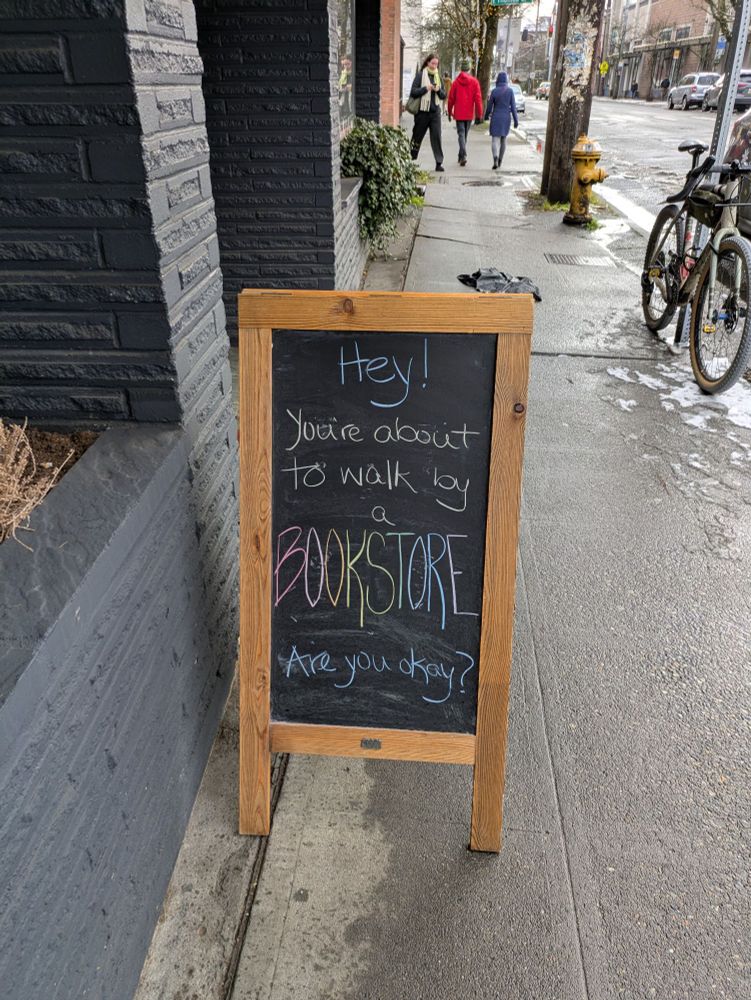 Hey!
You're about
to walk by
a
BOOKSTORE
Are you okay?